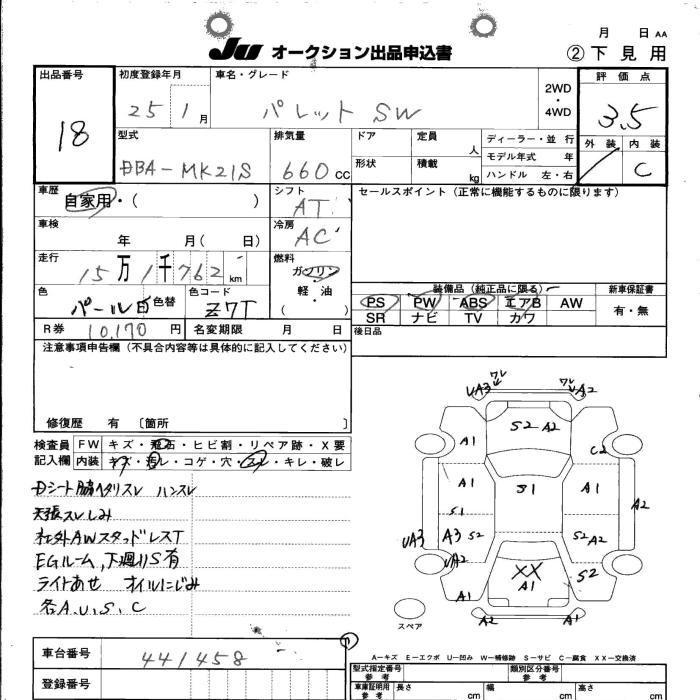 月 日 AA
JU オークション出品申込書 ②下見用
出品番号 初度登録年月 車名・グレード 2WD・4WD 評価点
18 25 1月 パレット SW 3.5
型式 排気量 ドア 定員 人 ディーラー・並行 外装 内装
DBA-MK21S 660cc 形状 積載 kg モデル年式 年 C
ハンドル 左・右
車歴 シフト セールスポイント(正常に機能するものに限ります)
自家用・( ) AT
車検 冷房
年 月( 日) AC
走行 燃料
15万1千762km ガソリン
色 色替 色コード 軽・油 装備品(純正品に限る) 新車保証書
パール白 Z7T ( ) PS PW ABS エアB AW 有・無
R券 10,170円 名変期限 月 日 SR ナビ TV カワ
注意事項申告欄(不具合内容等は具体的に記入してください) 後日品
修復歴 有 〔箇所 〕
検査員 FW キズ・飛石・ヒビ割・リペア跡・X要
記入欄 内装 キズ・汚レ・コゲ・穴・スレ・キレ・破レ
Dシート脇ヘタリスレ ハンスレ
天張スレしみ
社外AWスタッドレスT
EGルーム、下廻りS有
ライトあせ オイルにじみ
各A.U.S.C
ワレ ワレ
UA3 UA2
A1 S2 A2 C2
A1 S1 A1 A2
S1
UA3 A3 S2 S2 A2
UA2 XX S2
A1 A1
スペア A2 A1
A-キズ E-エクボ U-凹み W-補修跡 S-サビ C-腐食 XX-交換済
車台番号 441458
型式指定番号 類別区分番号
参考 参考
登録番号 車庫証明用 長さ 幅 高さ
参考 cm cm cm